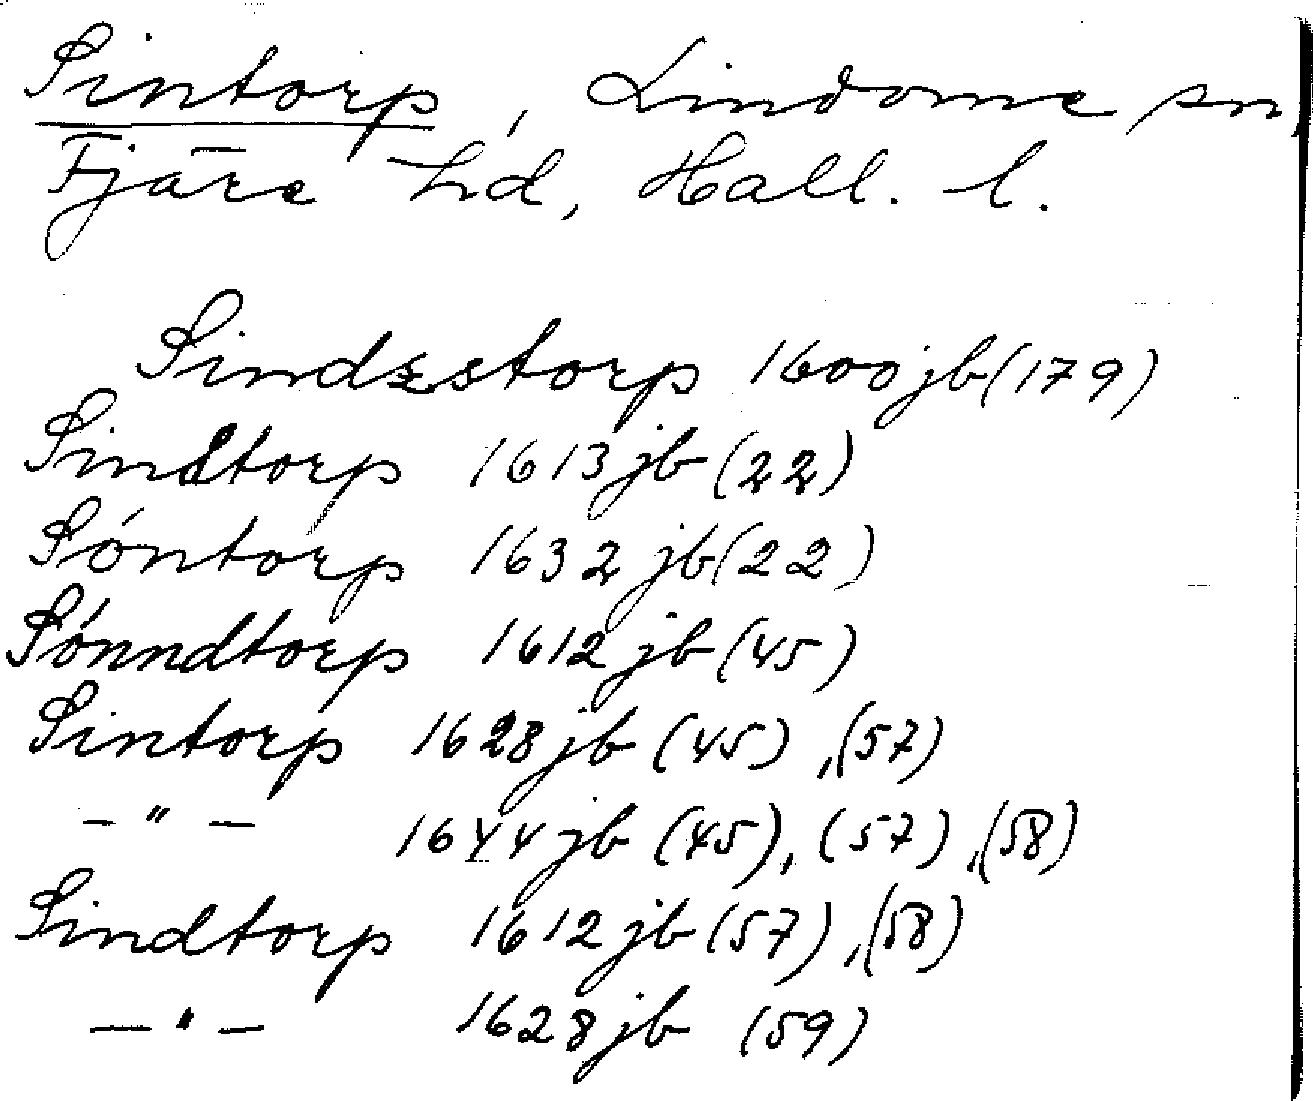 Sintorp, Lindome sn,
Fjäre hd, Hall. l.
Sindzstorp 1600 jb (179)
Sindtorp 1613 jb (22)
Sóntorp 1632 jb (22)
Sónndtorp 1612 jb (45)
Sintorp 1628 jb (45), (57)
—"— 1644 jb (45), (57), (58)
Sindtorp 1612 jb (57), (58)
—"— 1628 jb (59)